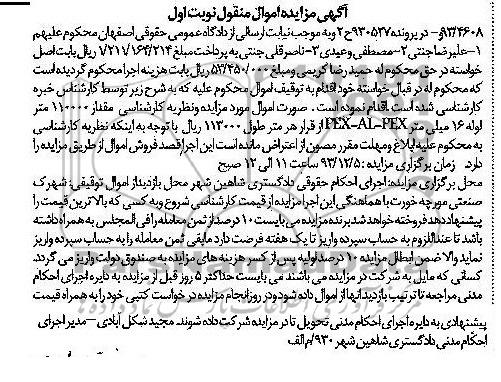 آگهی مزایده اموال منقول نوبت اول
۹۳/۴۶۰۸ر - در پرونده ۹۳۰۵۳۷ح ۲ و به موجب نیابت ارسالی از دادگاه عمومی حقوقی اصفهان محکوم علیهم
۱-علیرضا جنتی ۲-مصطفی وعیدی ۳-ناصر قلی جنتی به پرداخت مبلغ ۱/۲۱۱/۱۶۴/۲۱۴ ریال بابت اصل
خواسته در حق محکوم له حمید رضا کریمی و مبلغ ۵۲/۴۵۰/۰۰۰ ریال بابت هزینه اجرا محکوم گردیده است
که محکوم له در قبال خواسته خود اقدام به توقیف اموال محکوم علیه که به شرح زیر توسط کارشناس خبره
کارشناسی شده است اقدام نموده است. صورت اموال مورد مزایده و نظریه کارشناسی مقدار ۱۱۰۰۰ متر
لوله ۱۶ میلی متر PEX-AL-PEX از قرار هر متر طول ۱۱۳۰۰۰ ریال با توجه به اینکه نظریه کارشناسی
به محکوم علیه ابلاغ و مهلت مقرر مصون از اعتراض مانده است این اجرا قصد فروش اموال از طریق مزایده را
دارد زمان برگزاری مزایده: ۹۳/۱۲/۵ ساعت ۱۱ الی ۱۲ صبح
محل برگزاری مزایده: اجرای احکام حقوقی دادگستری شاهین شهر محل بازدید از اموال توقیفی: شهرک
صنعتی مورچه خورت با هماهنگی این اجرا مزایده از قیمت کارشناسی شروع و به کسی که بالاترین قیمت را
پیشنهاد دهد فروخته خواهد شد برنده مزایده می بایست ۱۰ درصد از ثمن معامله را فی المجلس به همراه داشته
باشد تا عنداللزوم به حساب سپرده واریز تا یک هفته فرصت دارد مابقی ثمن معامله را به حساب سپرده واریز
نماید والا ضمن ابطال مزایده ۱۰ درصد اولیه پس از کسر هزینه های مزایده به صندوق دولت واریز می گردد.
کسانی که مایل به شرکت در مزایده می باشند می بایست حداکثر ۵ روز قبل از مزایده به دایره اجرای احکام
مدنی مراجعه تا ترتیب بازدید آنها از اموال داده شود و در روز انجام مزایده درخواست کتبی خود را به همراه قیمت
پیشنهادی به دایره اجرای احکام مدنی تحویل تا در مزایده شرکت داده شوند. مجید شکل آبادی - مدیر اجرای
احکام مدنی دادگستری شاهین شهر ۹۳۰/م الف